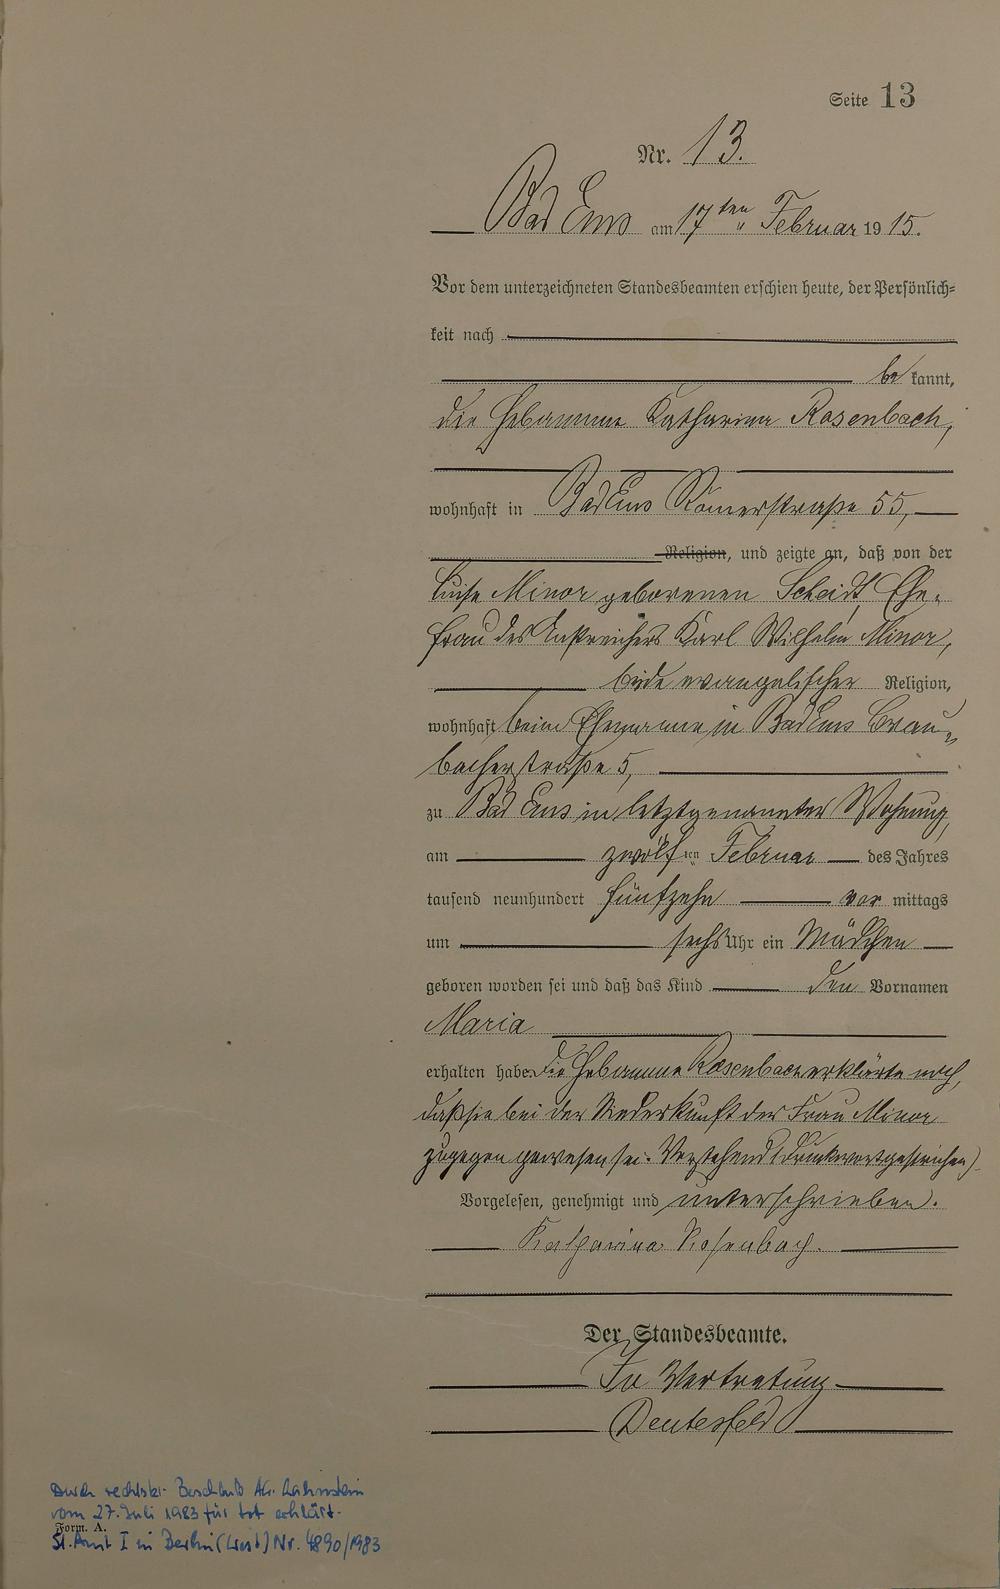 Seite 13
Nr. 13.
Bad Ems am 17ten Februar 19 15.
Vor dem unterzeichneten Standesbeamten erschien heute, der Persönlich=
keit nach
be kannt,
die Hebamme Katharina Rosenbach,
wohnhaft in Bad Ems Römerstraße 55,
Religion, und zeigte an, daß von der
Luise Minor geborenen Scheidt, Ehe-
frau des Anstreichers Karl Wilhelm Minor,
beide evangelischer Religion,
wohnhaft beim Ehemanne in Bad Ems Brau-
bacherstraße 5,
zu Bad Ems in letztgenannter Wohnung,
am zwölften Februar des Jahres
tausend neunhundert fünfzehn vor mittags
um sechs Uhr ein Mädchen
geboren worden sei und daß das Kind den Vornamen
Maria
erhalten habe. Die Hebamme Rosenbach erklärte noch,
daß sie bei der Niederkunft der Frau Minor
zugegen gewesen sei. Vorstehend 1 Druckwort gestrichen)
Vorgelesen, genehmigt und unterschrieben.
Katharina Rosenbach.
Der Standesbeamte.
In Vertretung
Deutesfeld
Durch rechtskr. Beschluß AG. Lahnstein
vom 27. Juli 1983 für tot erklärt.
Form. A.
St. Amt I in Berlin (West) Nr. 4890/1983